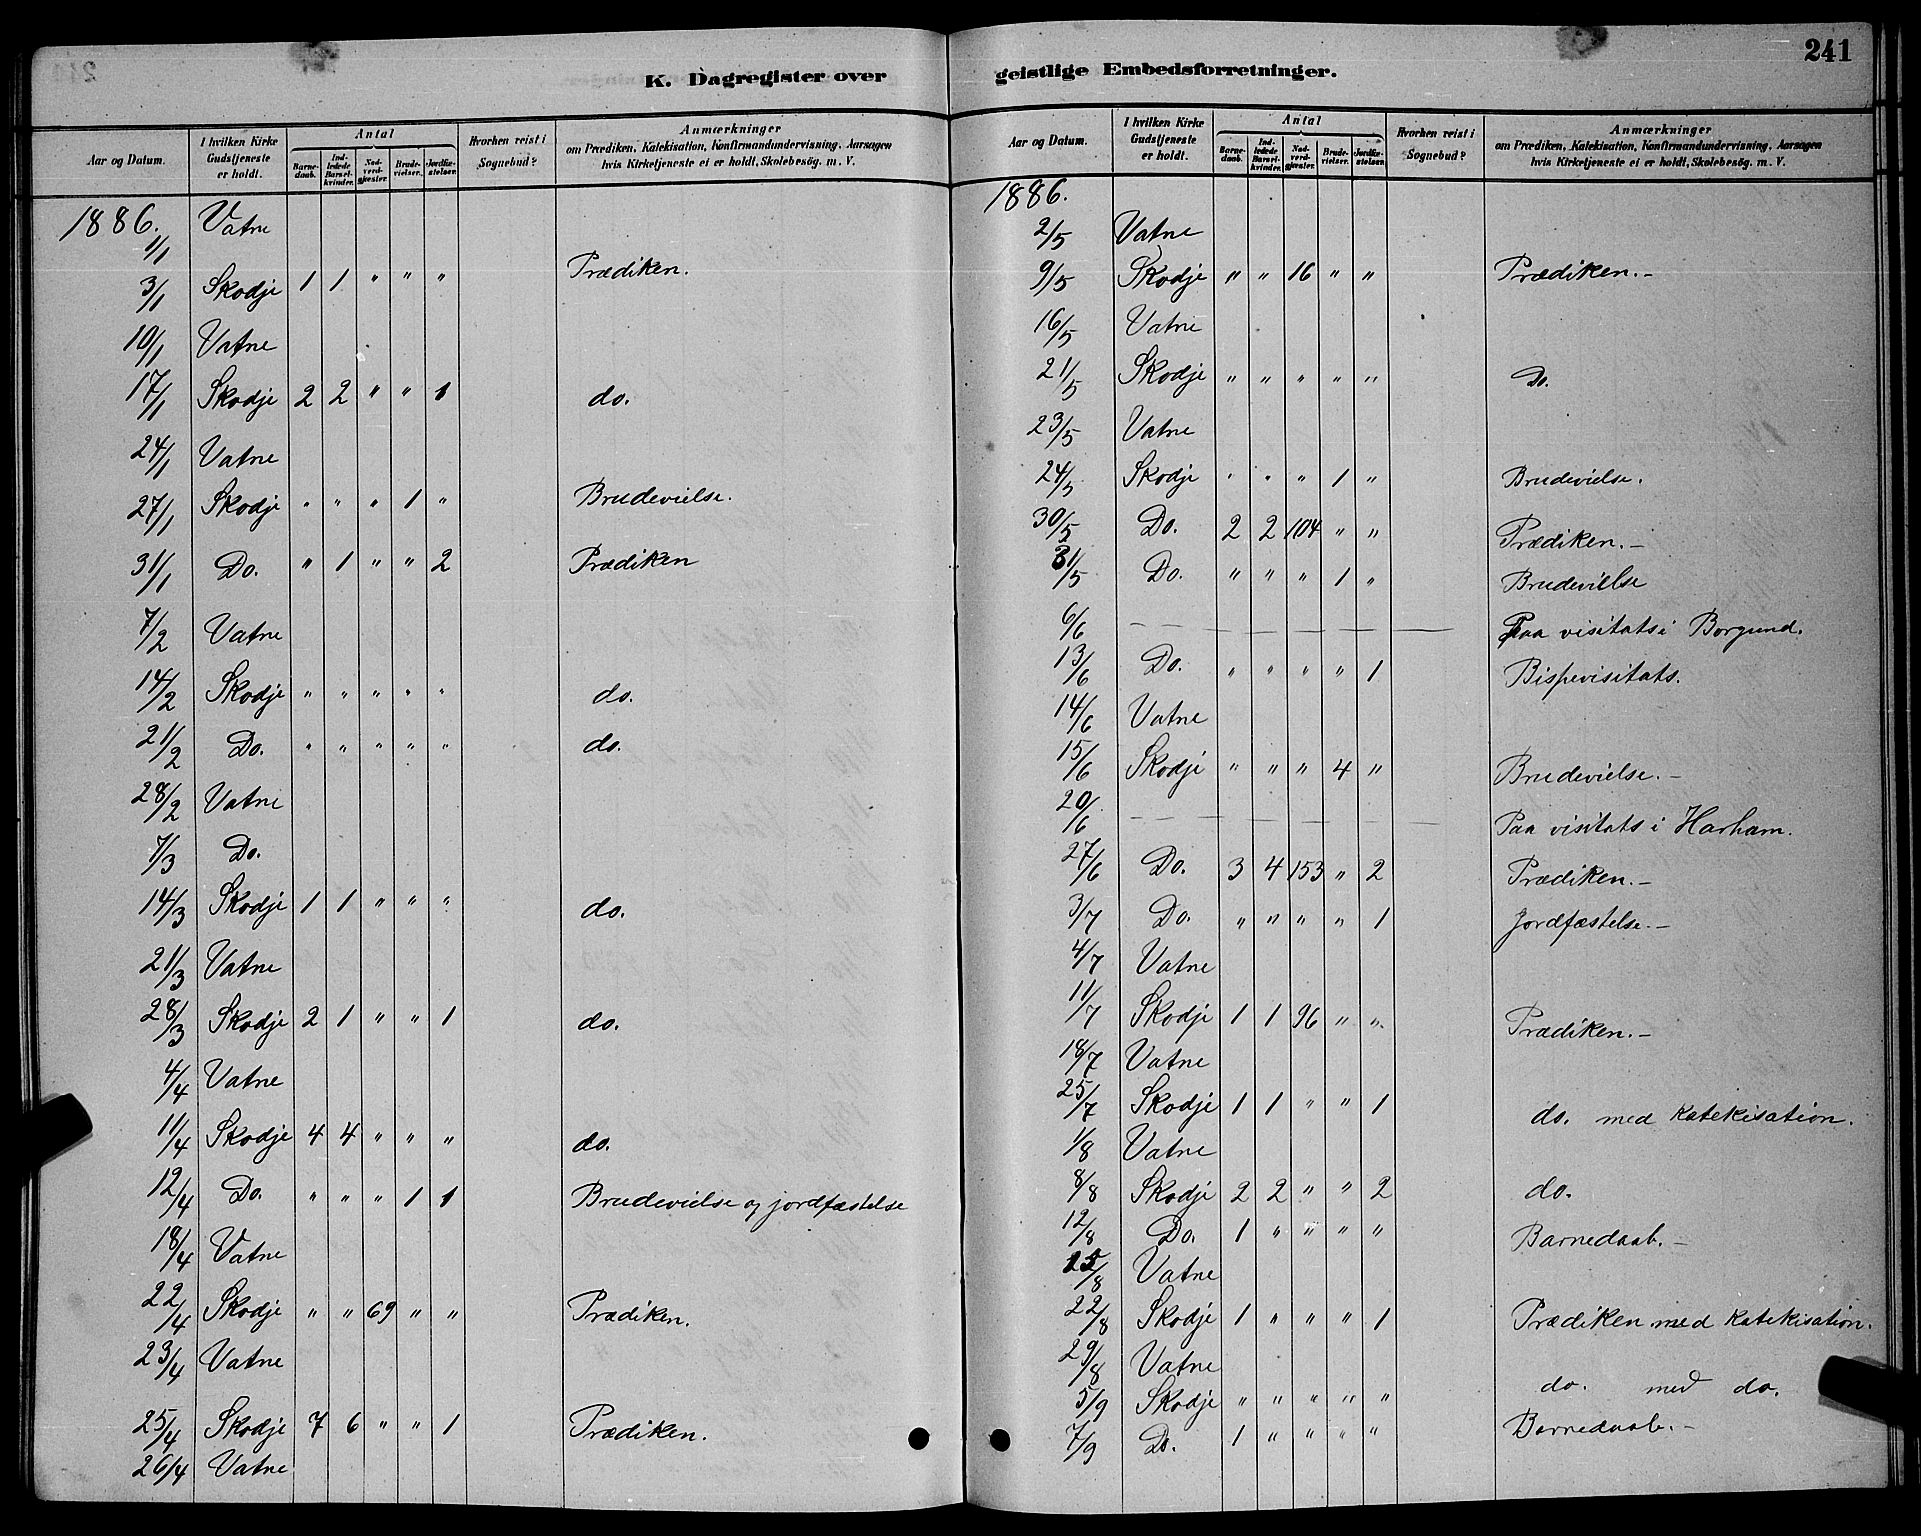 K. Dagregister over
Aar og Datum. | I hvilken Kirke Gudstjeneste er holdt. | Antal | Barne-daab. | Ind-ledede Barsel-kvinder. | Nad-verd-gjæster. | Brude-vielser. | Jordfæ-stelser. | Hvorhen reist i Sognebud? | Anmærkninger om Prædiken, Katekisation, Konfirmandundervisning, Aarsagen hvis Kirketjeneste ei er holdt, Skolebesøg. m. V.
1886.
1/1 Vatne
3/1 Skodje 1 1 " " " Prædiken.
10/1 Vatne
17/1 Skodje 2 2 " " 1 do.
24/1 Vatne
27/1 Skodje " " " 1 " Brudevielse.
31/1 Do. " 1 " " 2 Prædiken
7/2 Vatne
14/2 Skodje " " " " " do.
21/2 Do. " " " " " do.
28/2 Vatne
7/3 Do.
14/3 Skodje 1 1 " " " do.
21/3 Vatne
28/3 Skodje 2 1 " " 1 do.
4/4 Vatne
11/4 Skodje 4 4 " " " do.
12/4 Do. " " " 1 1 Brudevielse og jordfæstelse
18/4 Vatne
22/4 Skodje " " 69 " " Prædiken.
23/4 Vatne
25/4 Skodje 7 6 " " 1 Prædiken.
26/4 Vatne
geistlige Embedsforretninger.
241
Aar og Datum. | I hvilken Kirke Gudstjeneste er holdt. | Antal | Barne-daab. | Ind-ledede Barsel-kvinder. | Nad-verd-gjæster. | Brude-vielser. | Jordfæ-stelser. | Hvorhen reist i Sognebud? | Anmærkninger om Prædiken, Katekisation, Konfirmandundervisning, Aarsagen hvis Kirketjeneste ei er holdt, Skolebesøg. m. V.
1886.
2/5 Vatne
9/5 Skodje " " 16 " " Prædiken.-
16/5 Vatne
21/5 Skodje " " " " " Do.
23/5 Vatne
24/5 Skodje " " " 1 " Brudevielse.
30/5 Do. 2 2 104 " " Prædiken.-
31/5 Do. " " " 1 " Brudevielse
6/6 — Paa visitats i Borgund.
13/6 Do. " " " " 1 Bispevisitats.
14/6 Vatne
15/6 Skodje " " " 4 " Brudevielse.-
20/6 — Paa visitats i Harham.
27/6 Do. 3 4 153 " 2 Prædiken.-
3/7 Do. " " " " 1 Jordfæstelse.-
4/7 Vatne
11/7 Skodje 1 1 96 " " Prædiken.-
18/7 Vatne
25/7 Skodje 1 1 " " 1 do. med katekisation.
1/8 Vatne
8/8 Skodje 2 2 " " 2 do.
12/8 Do. 1 " " " " Barnedaab.-
15/8 Vatne
22/8 Skodje 1 " " " 1 Prædiken med katekisation.
29/8 Vatne
5/9 Skodje " " " " " do. med do.
7/9 Do. 1 " " " " Barnedaab.-